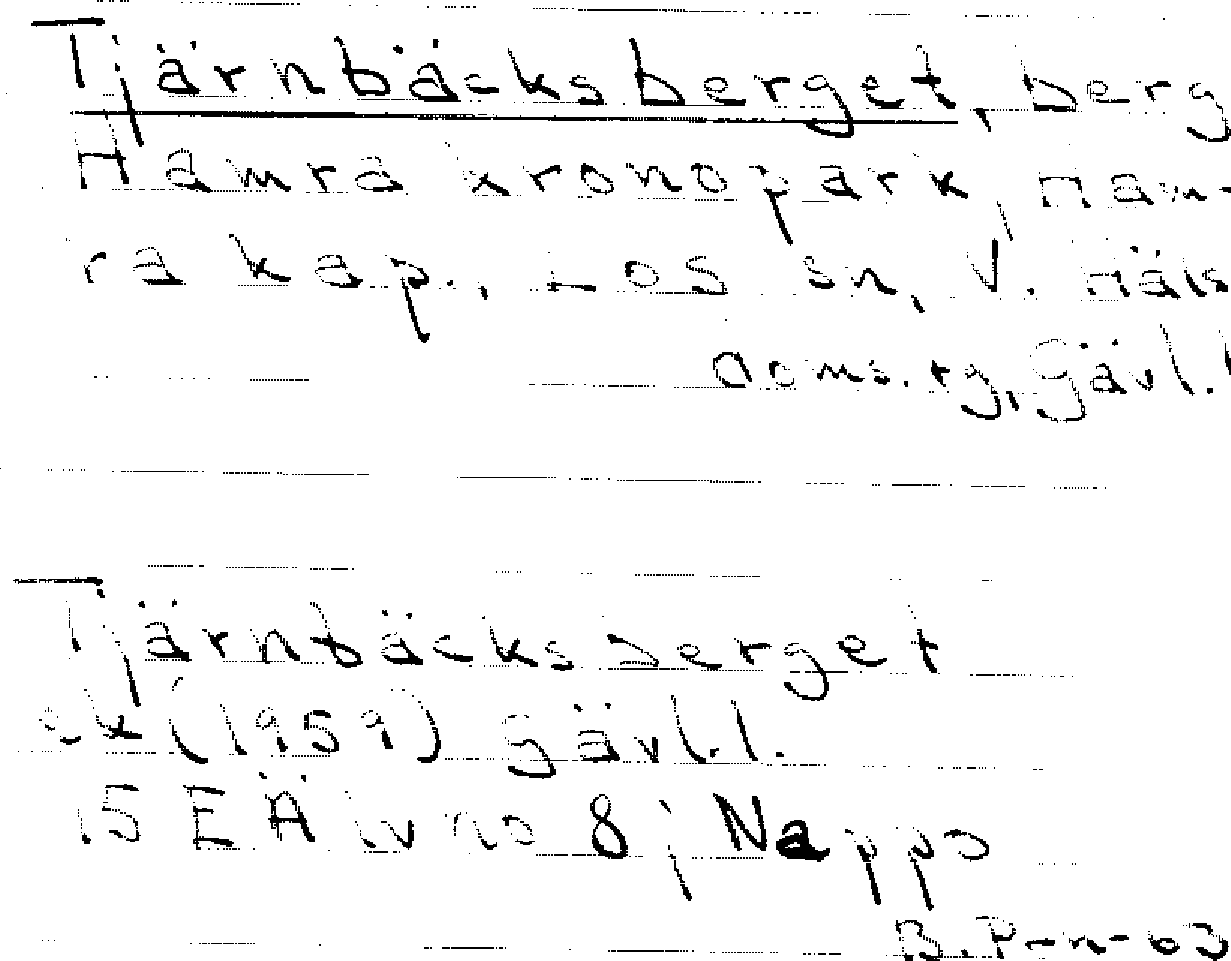 Tjärnbäcksberget, berg
Hamra kronopark, Ham-
ra kap., Los sn, V. Häls
doms.rg, Gävl.l
Tjärnbäcksberget
ek (1959) Gävl.l.
15 EÄ iv no 8; Nappo
B.P-n-63